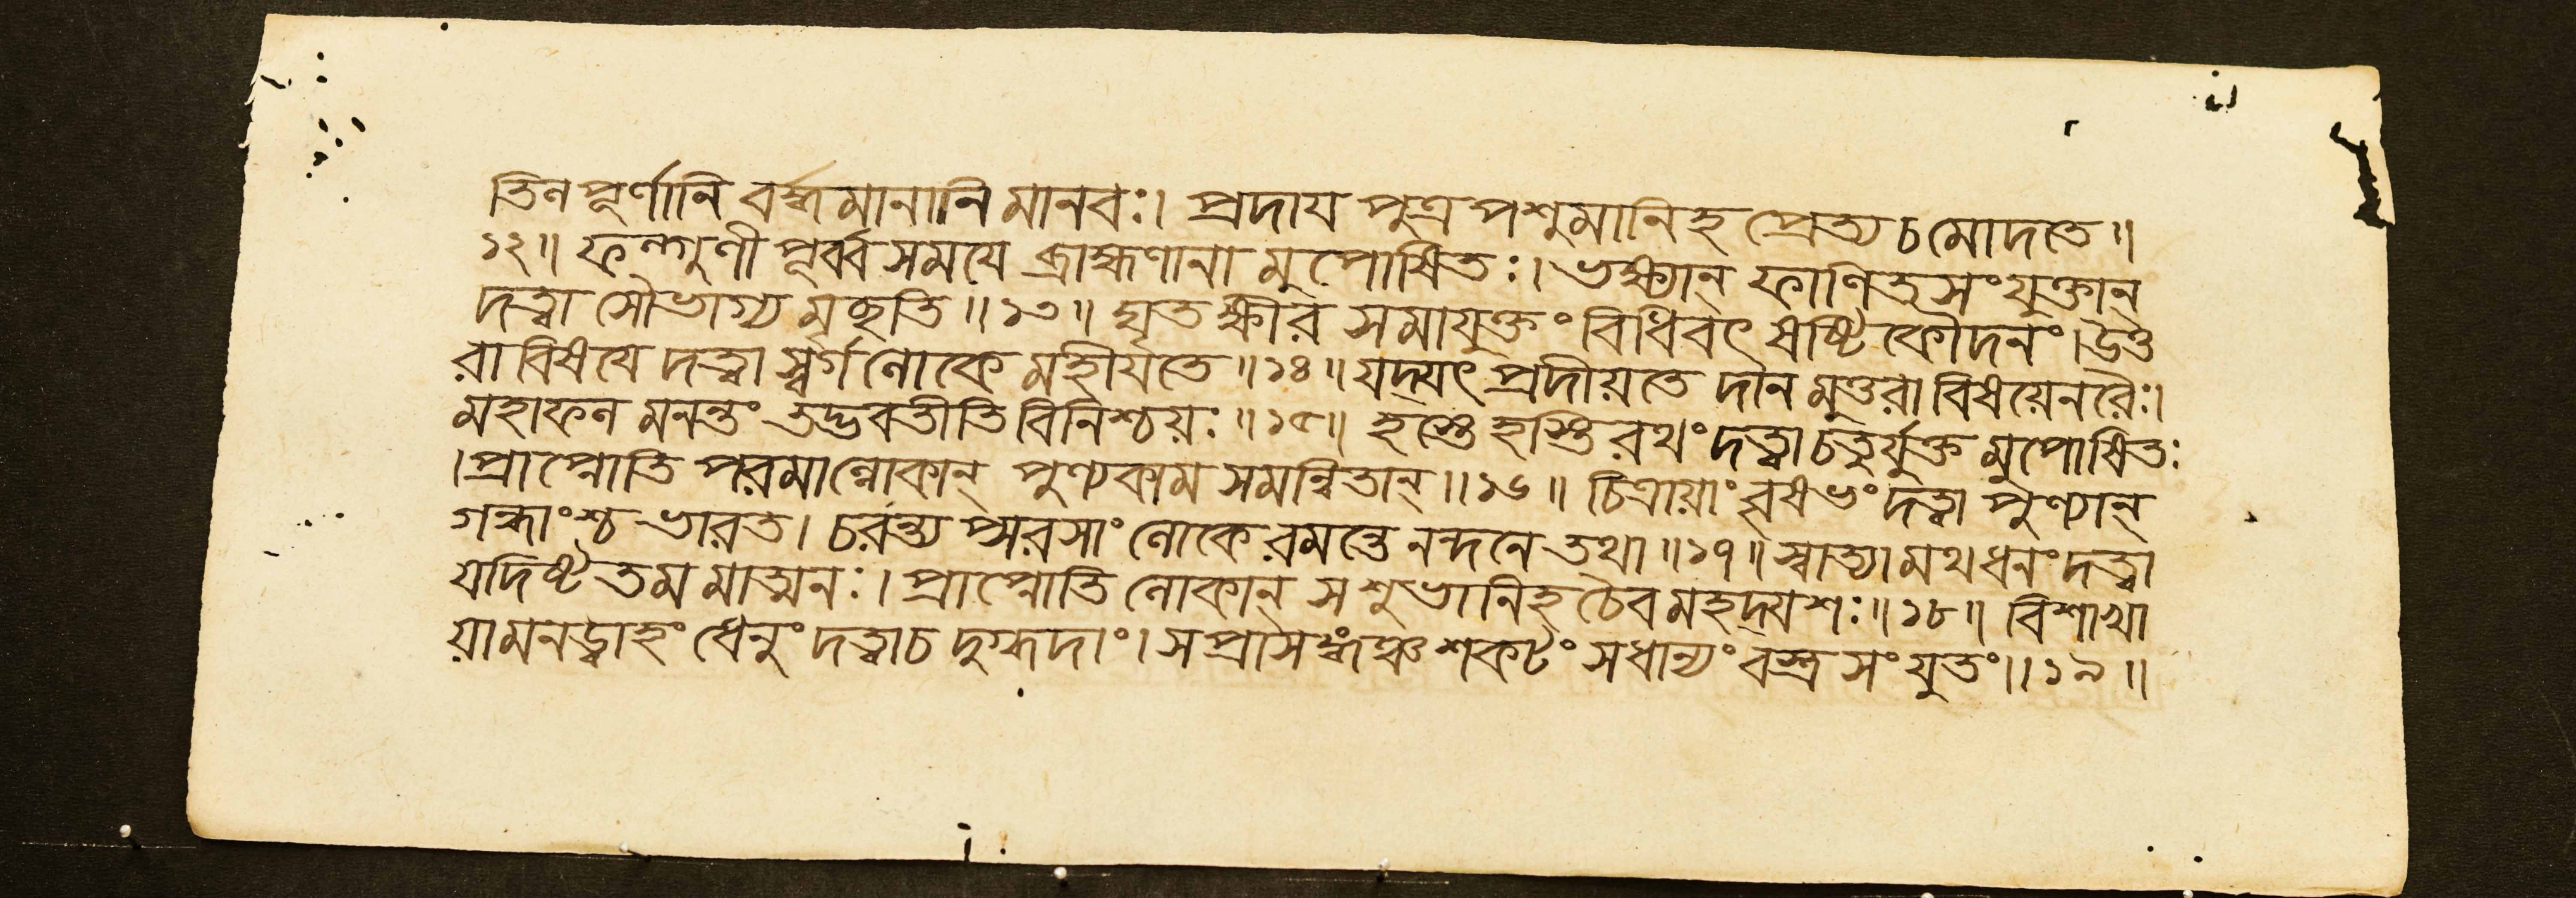 তিলপূর্ণানি বর্দ্ধমানানি মানবঃ। প্রদায পুত্রপশুমানিহ প্রেত্য চ মোদতে॥
১২॥ ফল্গুণী পূর্ব্বসমযে ব্রাহ্মণানামুপোষিতঃ। ভক্ষ্যান্ ফাণিতসংযুক্তান্
দত্ত্বা সৌভাগ্যমৃচ্ছতি॥১৩॥ ঘৃতক্ষীরসমাযুক্তং বিধিবৎ ষষ্টিকৌদনং। উত্ত
রাবিষযে দত্ত্বা স্বর্গলোকে মহীযতে॥১৪॥ যদ্যৎ প্রদীয়তে দানমুত্তরাবিষয়েনরৈঃ।
মহাফলমনন্তং তদ্ভবতীতি বিনিশ্চয়ঃ॥১৫॥ হস্তে হস্তিরথং দত্ত্বা চতুর্যুক্তমুপোষিতঃ
।প্রাপ্নোতি পরমাল্লোকান্ পুণ্যকামসমন্বিতান্॥১৬॥ চিত্রায়াং বৃষভং দত্ত্বা পুণ্যান্
গন্ধাংশ্চ ভারত। চরন্ত্যপ্সরসাং লোকে রমন্তে নন্দনে তথা॥১৭॥ স্বাত্যামথ ধনং দত্ত্বা
যদিষ্টতমমাত্মনঃ। প্রাপ্নোতি লোকান্ স শুভানিহ চৈব মহদ্যশঃ॥১৮॥ বিশাখা
য়ামনড্বাহং ধেনুং দত্ত্বা চ দুগ্ধদাং। সপ্রাসঙ্গঞ্চ শকটং সধান্যং বস্ত্রসংযুতং॥১৯॥